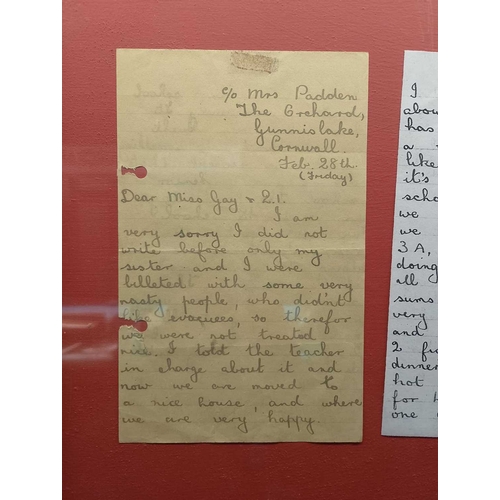 c/o Mrs Padden
The Orchard,
Gunnislake,
Cornwall.
Feb. 28th.
(Friday)
Dear Miss Gay & 2.1.
I am
very sorry I did not
write before only my
sister and I were
billeted with some very
nasty people, who didn't
like evacuees, so therefor
we were not treated
nice. I told the teacher
in charge about it and
now we are moved to
a nice house, and where
we are very happy.
I
abou
has
a
like
it's
scho
we
we
3A,
doing
all
sums
very
and
2 fu
dinner
hot
for h
one